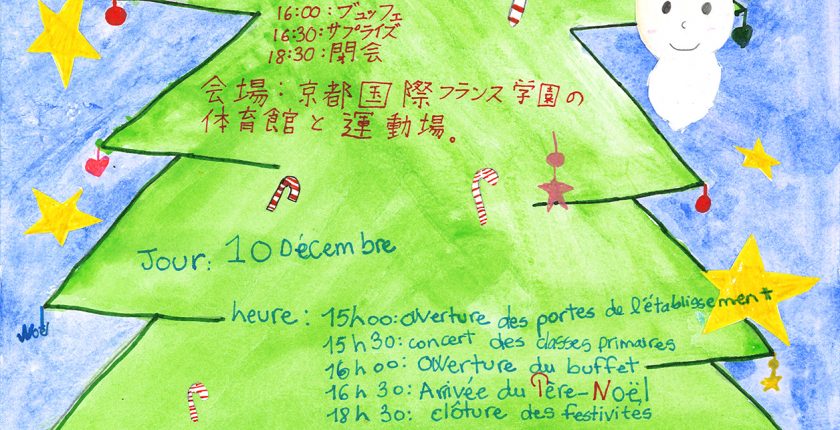 16:00:ブュッフェ
16:30:サプライズ
18:30:閉会
会場:京都国際フランス学園の
体育館と運動場。
Jour: 10 Décembre
heure: 15h00:ouverture des portes de l'établissement
15h30:concert des classes primaires
16h00: Ouverture du buffet
16h30: Arrivée du Père-Noël
18h30: clôture des festivités